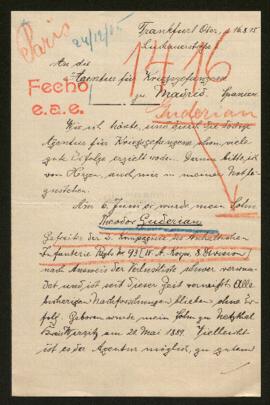 Paris
24/12/15
Frankfurt Oder, 16.8.15
Lindauerstraße 1
1416
An die
Agentur für Kriegsgefangene
zu Madrid. Spanien.
Fecho
e.a.e.
Guderian
Wie ich hörte, sind durch die dortige
Agentur für Kriegsgefangene schon viele
gute Erfolge erzielt worden. Darum bitte ich
von Herzen, auch mir in meiner Not
zustehen.
Am 6. Juni ist mein Sohn
Theodor Guderian
Gefreiter der 5. Kompagnie des Anhaltischen
Infanterie Regts. No 93 (IV A. Korps. 8. Division)
nach Ausweis der Verlustliste, schwer verwun-
det und ist seit dieser Zeit vermißt. Alle
bisherigen Nachforschungen blieben ohne Er-
folg. Geboren wurde mein Sohn zu Netzthal
Kreis Wirsitz am 20. Mai 1889. Vielleicht
ist es der Agentur möglich, zu gutem